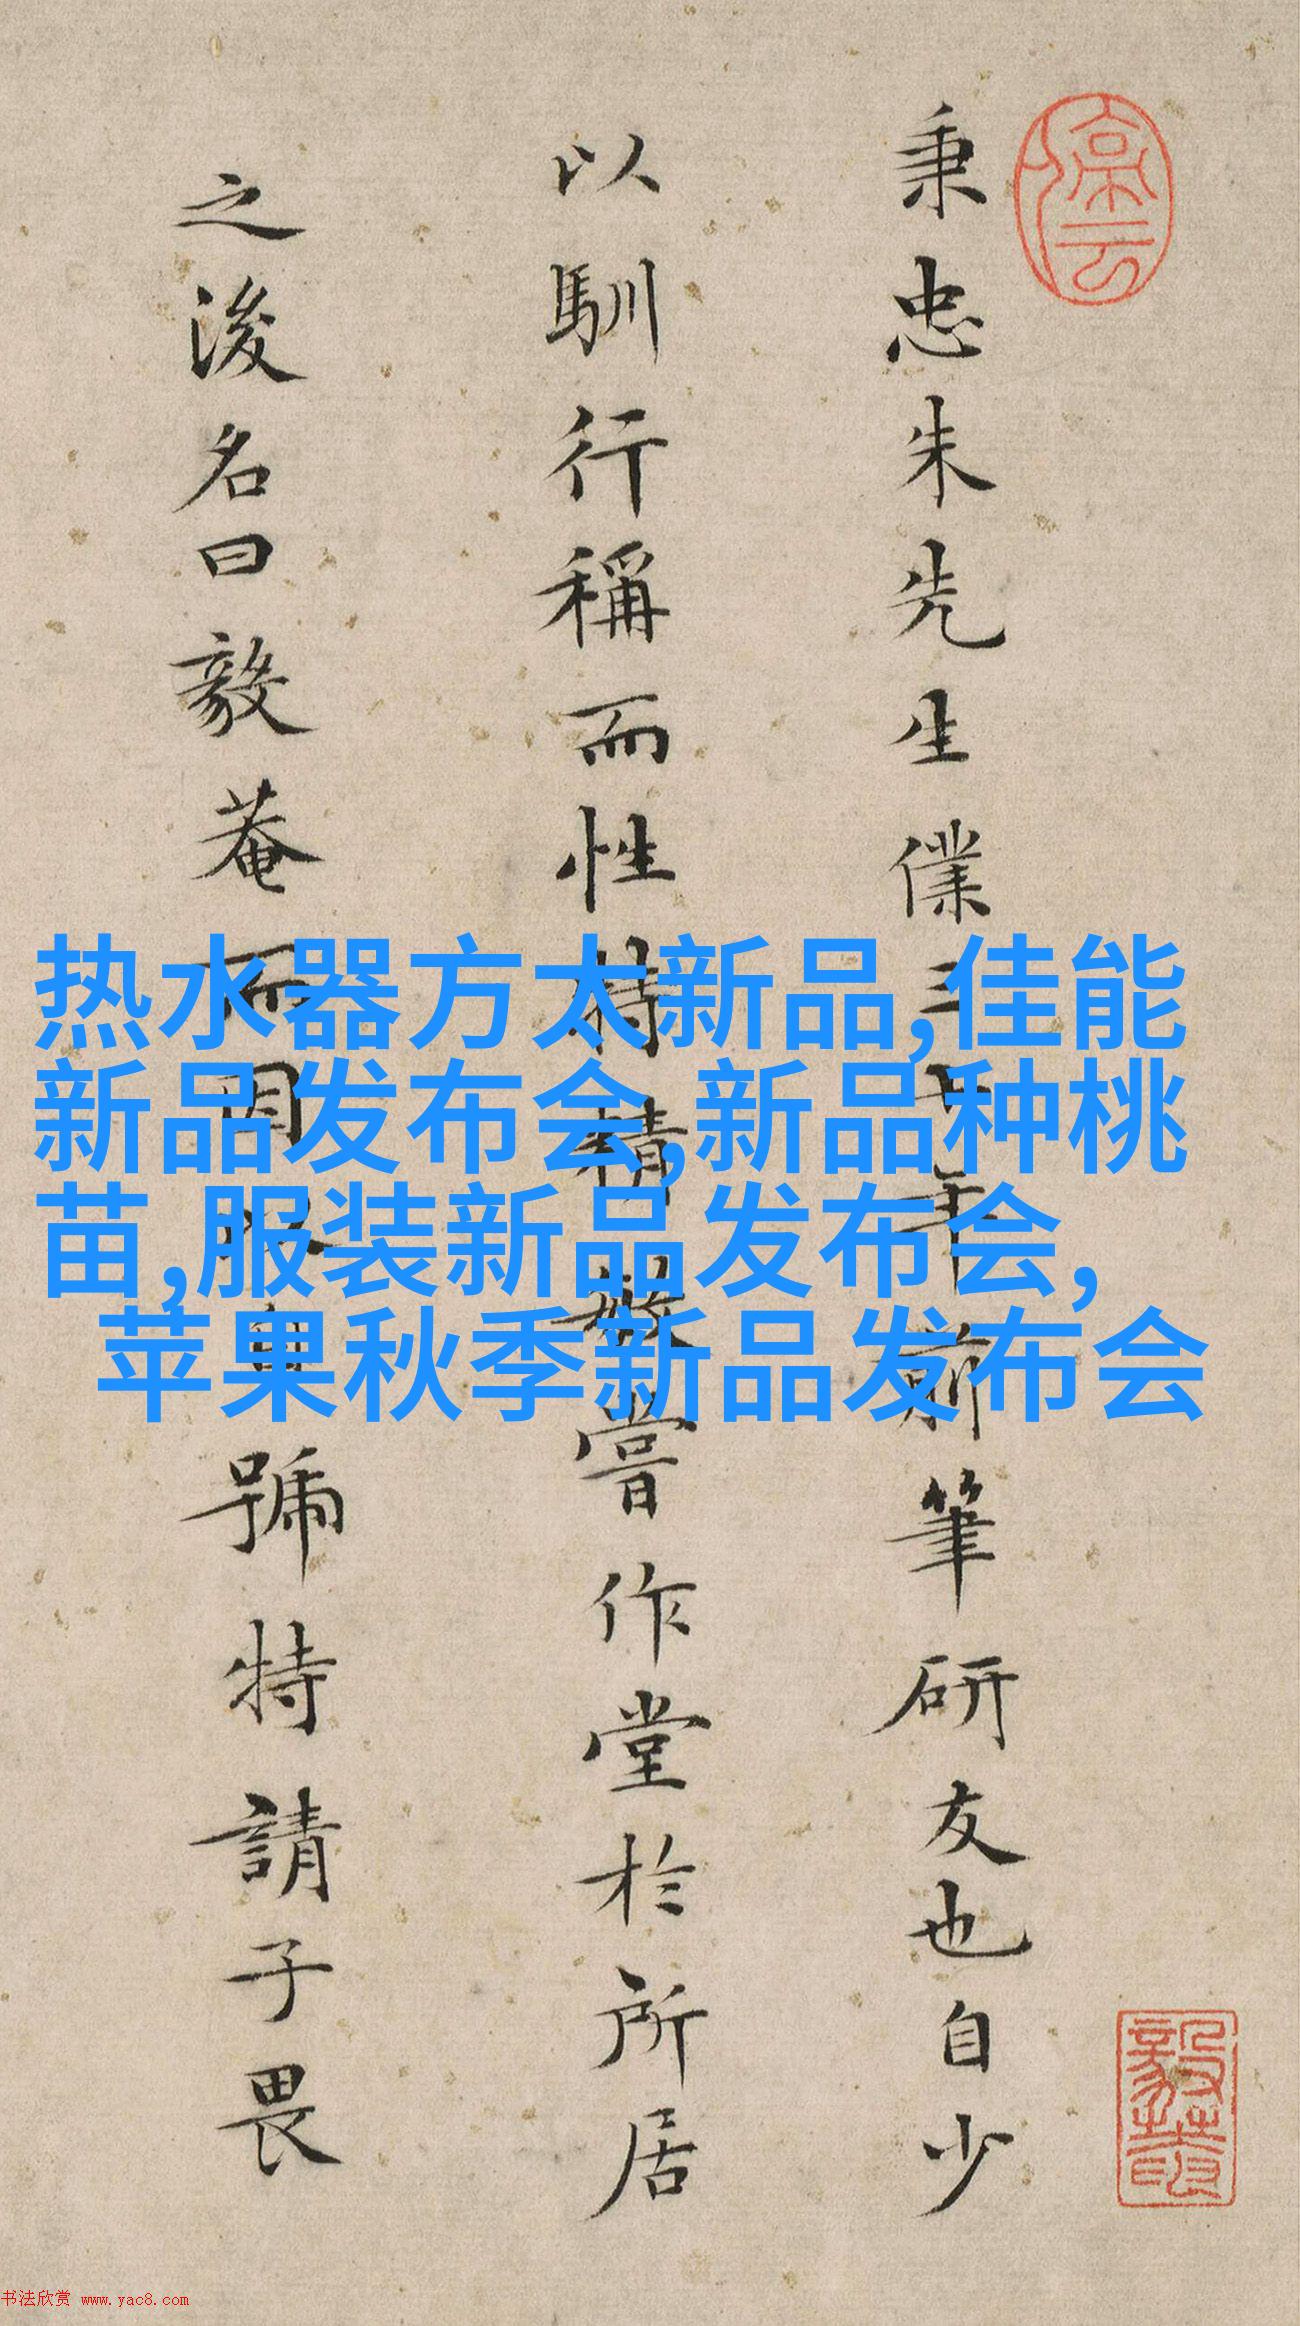 停云
秉忠朱先生僕三十年前筆研友也自少
以馴行稱而性特精敏嘗作堂於所居
之後名曰毅菴而因以自號特請子畏
热水器方太新品,佳能
新品发布会,新品种桃
苗,服装新品发布会,
苹果秋季新品发布会
书法欣赏 www.yac8.com